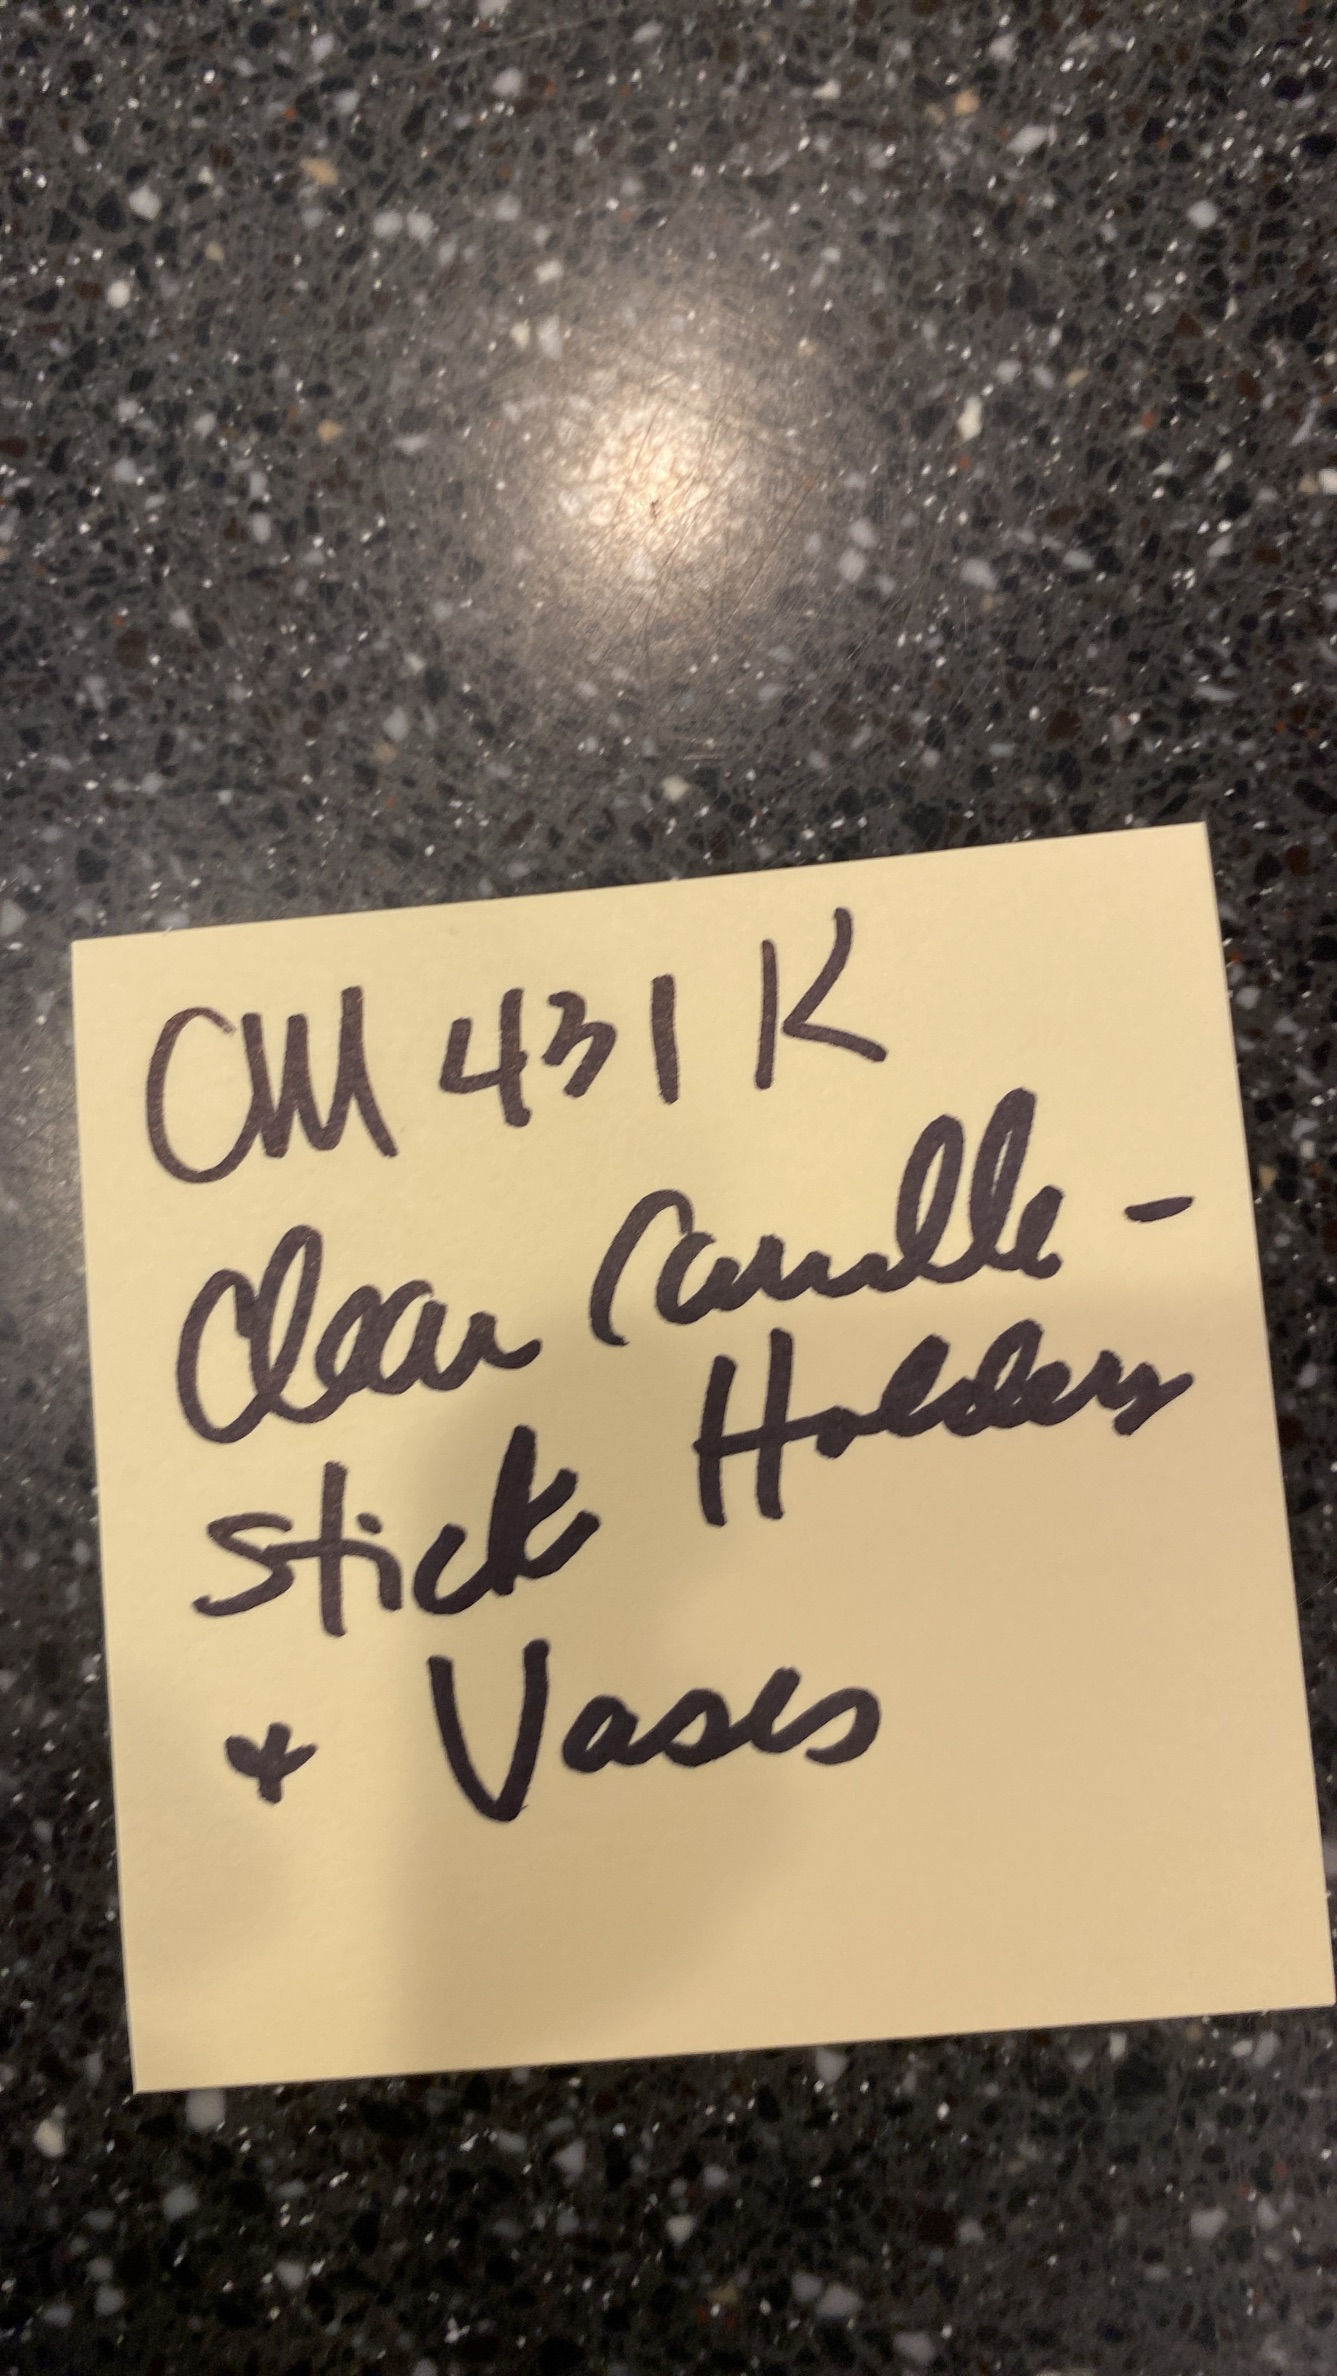 CM 431 K
Clear Candle-
stick Holders
+ Vases